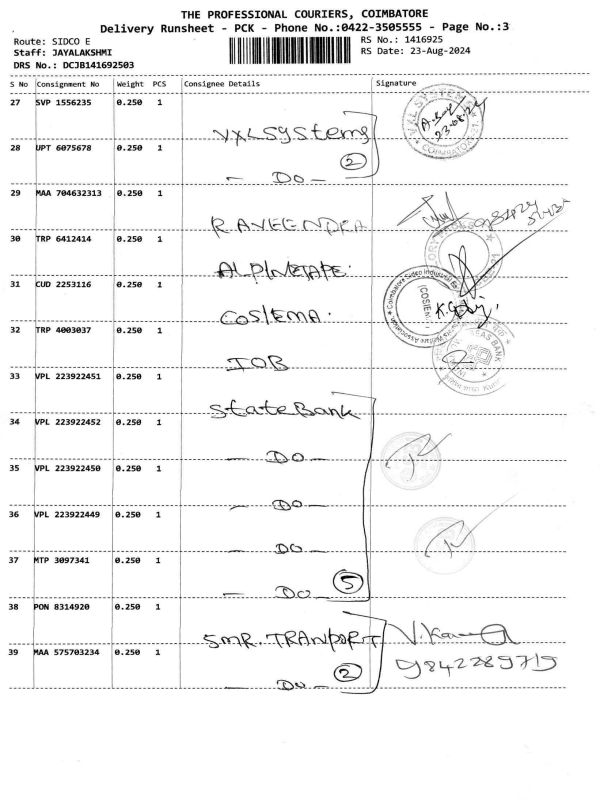 THE PROFESSIONAL COURIERS, COIMBATORE
Delivery Runsheet - PCK - Phone No.:0422-3505555 - Page No.:3
Route: SIDCO E
RS No.: 1416925
Staff: JAYALAKSHMI
RS Date: 23-Aug-2024
DRS No.: DCJB141692503
S No Consignment No Weight PCS Consignee Details Signature
27 SVP 1556235 0.250 1 VXL Systems
28 UPT 6075678 0.250 1 - Do - 2
VXL SYSTEMS
23-08-24
29 MAA 704632313 0.250 1 RAVEENDRA
30 TRP 6412414 0.250 1 ALPINETAPE.
31 CUD 2253116 0.250 1 COSIEMA.
32 TRP 4003037 0.250 1 IOB
33 VPL 223922451 0.250 1 State Bank
34 VPL 223922452 0.250 1 - Do -
35 VPL 223922450 0.250 1 - Do -
36 VPL 223922449 0.250 1 - Do -
37 MTP 3097341 0.250 1 - Do - 5
38 PON 8314920 0.250 1 SMR. TRANPORT
39 MAA 575703234 0.250 1 - Do - 2
9842289719